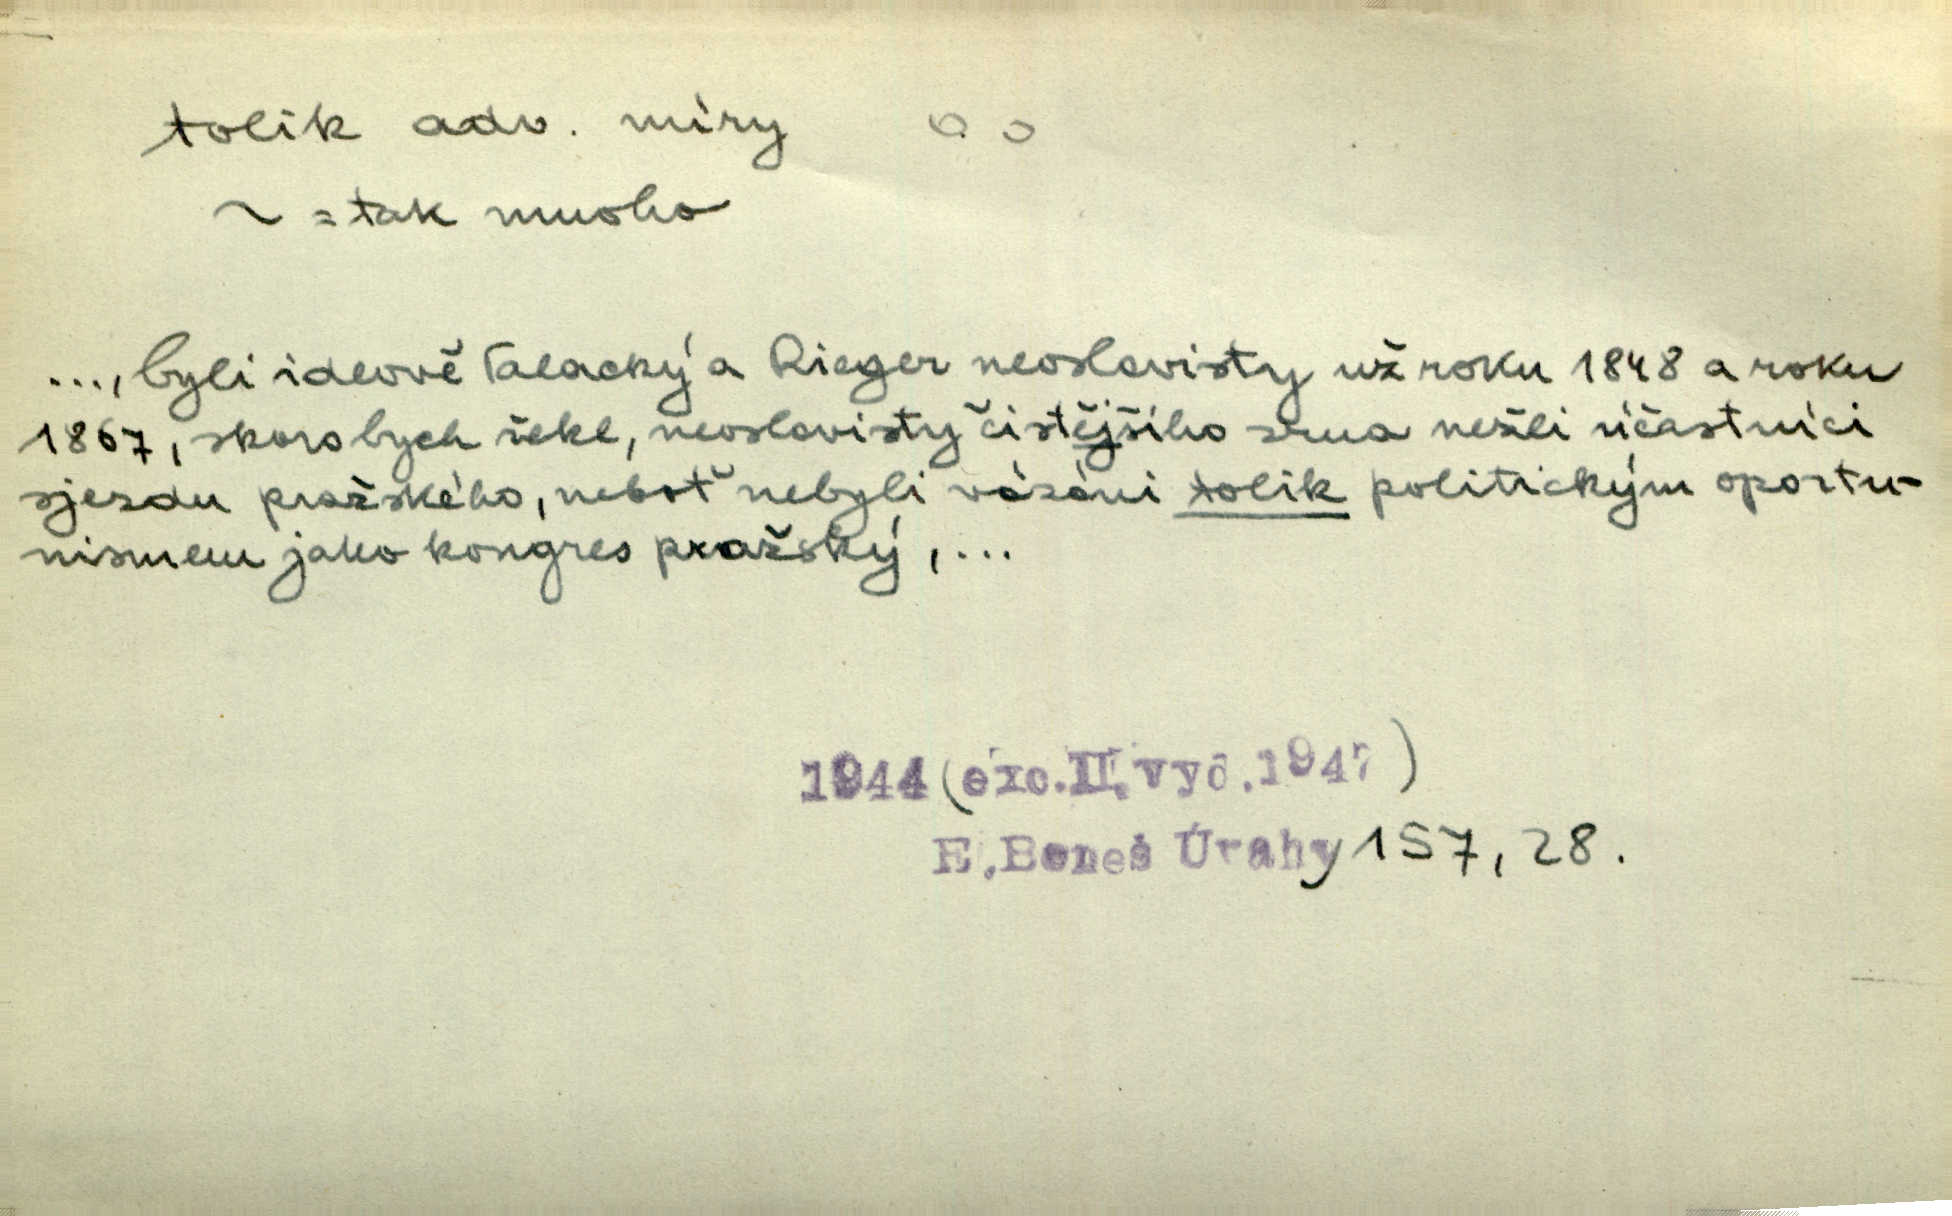 tolik adv. míry
~ = tak mnoho
..., byli ideově Palacký a Rieger neoslavisty už roku 1848 a roku
1867, skoro bych řekl, neoslavisty čistějšího zrna nežli účastníci
sjezdu pražského, neboť nebyli vázáni tolik politickým oportu-
nismem jako kongres pražský, ...
1944 (exc. II. vyd. 1947)
E. Beneš Úvahy 157, 28.